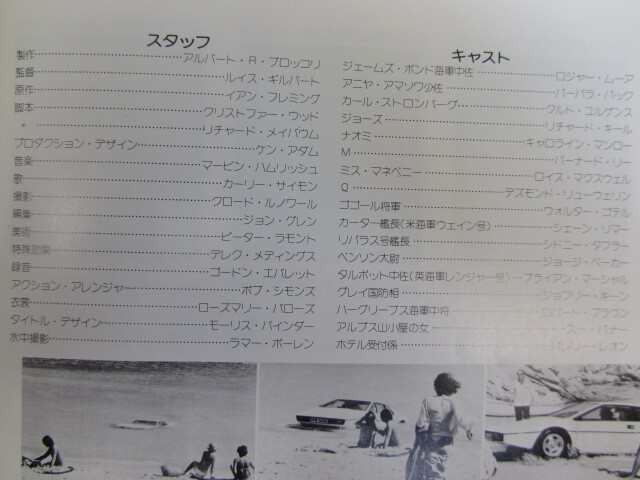 スタッフ
製作…アルバート・R・ブロッコリ
監督…ルイス・ギルバート
原作…イアン・フレミング
脚本…クリストファー・ウッド
〃…リチャード・メイバウム
プロダクション・デザイン…ケン・アダム
音楽…マービン・ハムリッシュ
歌…カーリー・サイモン
撮影…クロード・ルノワール
編集…ジョン・グレン
美術…ピーター・ラモント
特殊効果…デレク・メディングス
録音…ゴードン・エバレット
アクション・アレンジャー…ボブ・シモンズ
衣裳…ローズマリー・バローズ
タイトル・デザイン…モーリス・バインダー
水中撮影…ラマー・ボーレン
キャスト
ジェームズ・ボンド海軍中佐…ロジャー・ムーア
アニヤ・アマソワ少佐…バーバラ・バック
カール・ストロンバーグ…クルト・ユルゲンス
ジョーズ…リチャード・キール
ナオミ…キャロライン・マンロー
M…バーナード・リー
ミス・マネペニー…ロイス・マクスウェル
Q…デズモンド・リューウェリン
ゴゴール将軍…ウォルター・ゴテル
カーター艦長(米海軍ウェイン号)…シェーン・リマー
リパラス号艦長…シドニー・タフラー
ベンソン大尉…ジョージ・ベーカー
タルボット中佐(英海軍レンジャー号)…ブライアン・マーシャル
グレイ国防相…ジョフリー・キーン
ハーグリーブス海軍中将…ロバート・ブラウン
アルプス山小屋の女…スー・バナー
ホテル受付係…バレリー・レオン